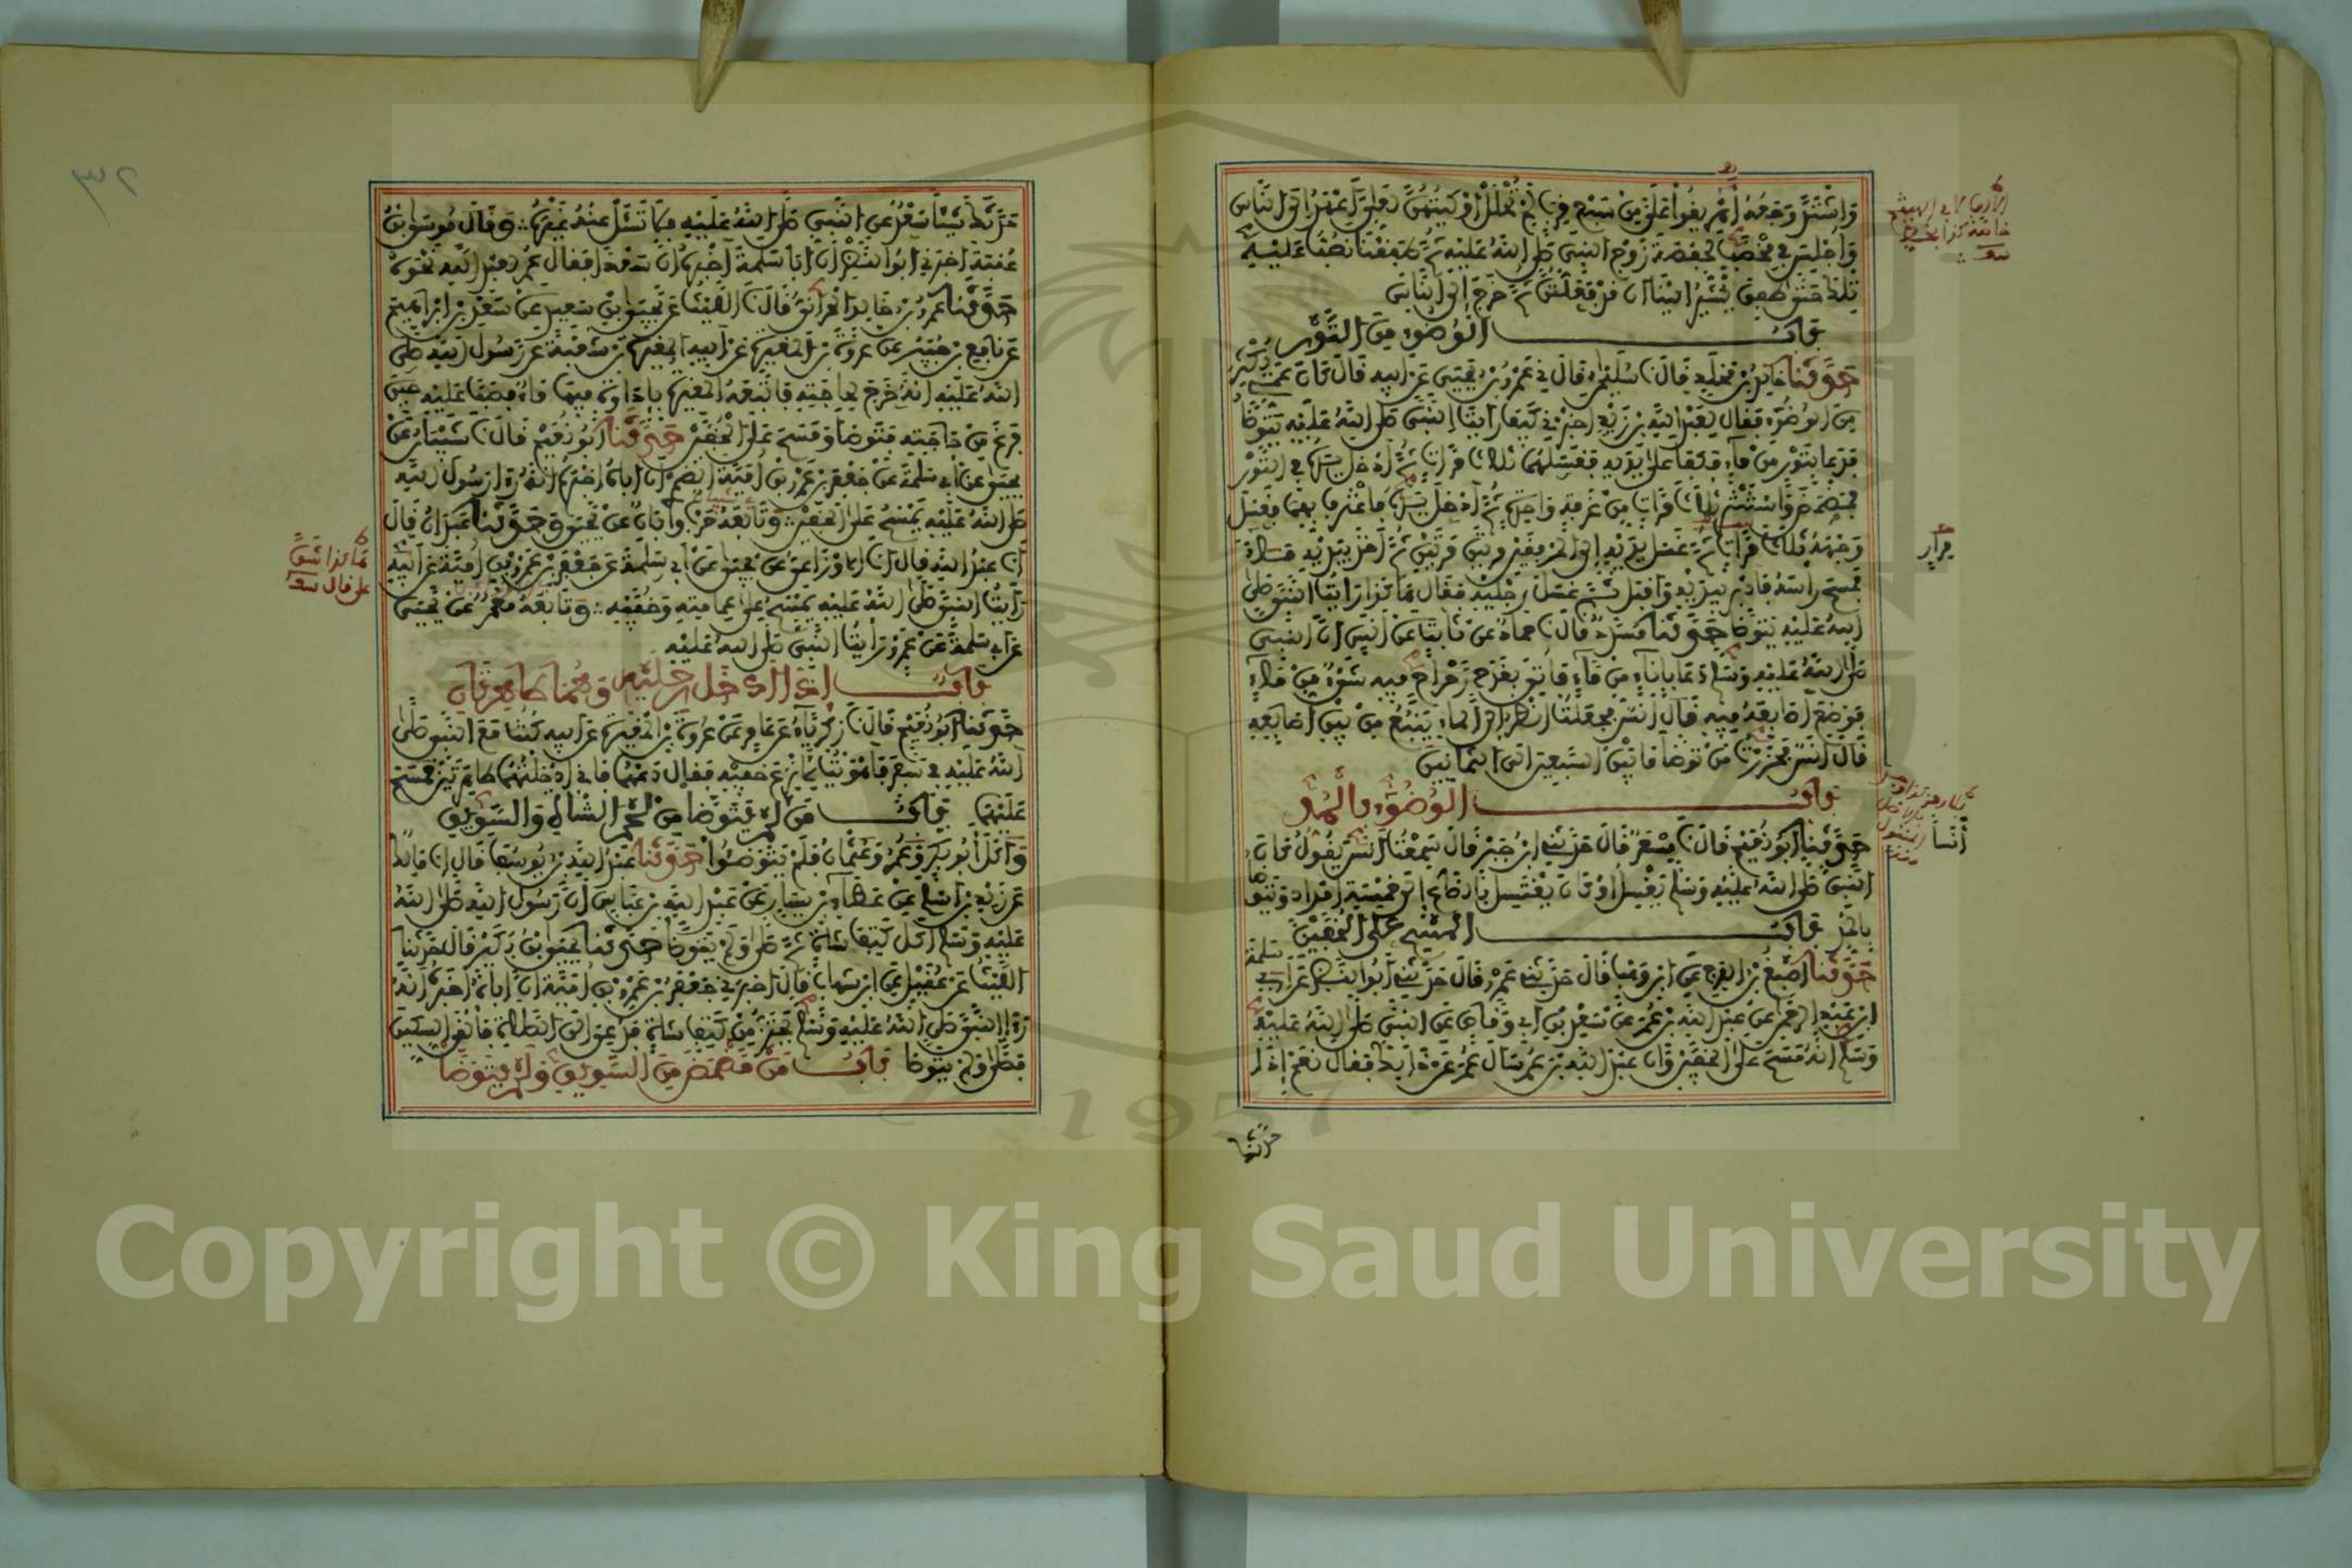 واشتد وجعه أهريقوا علي من سبع قرب لم تحلل أوكيتهن لعلي أعهد إلى الناس
وأجلس في مخضب لحفصة زوج النبي صلى الله عليه ثم طفقنا نصب عليه
تلك حتى طفق يشير إلينا أن قد فعلتن ثم خرج إلى الناس
باب الوضوء من التور
حدثنا خالد بن مخلد قال نا سليمان قال ني عمرو بن يحيى عن أبيه قال كان عمي يكثر
من الوضوء فقال لعبد الله بن زيد أخبرني كيف رأيت النبي صلى الله عليه يتوضأ
فدعا بتور من ماء فكفأ على يديه فغسلهما ثلاث مرات ثم أدخل يده في التور
فمضمض واستنثر ثلاث مرات من غرفة واحدة ثم أدخل يده فاغترف بها فغسل
وجهه ثلاث مرات ثم غسل يديه إلى المرفقين مرتين مرتين ثم أخذ بيديه ماء
فمسح رأسه فأدبر بيديه وأقبل ثم غسل رجليه فقال هكذا رأيت النبي صلى
الله عليه يتوضأ حدثنا مسدد قال نا حماد عن ثابت عن أنس أن النبي
صلى الله عليه وسلم دعا بإناء من ماء فأتي بقدح رحراح فيه شيء من ماء
فوضع أصابعه فيه قال أنس فجعلت أنظر إلى الماء ينبع من بين أصابعه
قال أنس فحزرت من توضأ ما بين السبعين إلى الثمانين
باب الوضوء بالمد
حدثنا أبو نعيم قال نا مسعر قال حدثني ابن جبر قال سمعت أنس يقول كان
النبي صلى الله عليه وسلم يغسل أو كان يغتسل بالصاع إلى خمسة أمداد ويتوضأ
بالمد باب المسح على الخفين
حدثنا أصبغ بن الفرج عن ابن وهب قال حدثني عمرو قال حدثني أبو النضر عن أبي سلمة
ابن عبد الرحمن عن عبد الله بن عمر عن سعد بن أبي وقاص عن النبي صلى الله عليه
وسلم أنه مسح على الخفين وأن عبد الله بن عمر سأل عمر عن ذلك فقال نعم إذا
حدثك
مرار
أنسا
٣٢
حدثك شيئا سعد عن النبي صلى الله عليه فلا تسئل عنه غيره وقال موسى بن
عقبة أخبرني أبو النضر أن أبا سلمة أخبره أن سعدا فقال عمر لعبد الله نحوه
حدثنا عمرو بن خالد الحراني قال نا الليث عن يحيى بن سعيد عن سعد بن إبراهيم
عن نافع بن جبير عن عروة بن المغيرة عن أبيه المغيرة بن شعبة عن رسول الله صلى
الله عليه أنه خرج لحاجته فاتبعه المغيرة بإداوة فيها ماء فصب عليه حين
فرغ من حاجته فتوضأ ومسح على الخفين حدثنا أبو نعيم قال نا شيبان عن
يحيى عن أبي سلمة عن جعفر بن عمرو بن أمية الضمري أن أباه أخبره أنه رأى رسول الله
صلى الله عليه يمسح على الخفين وتابعه حرب وأبان عن يحيى وحدثنا عبدان قال
أنا عبد الله قال أنا الأوزاعي عن يحيى عن أبي سلمة عن جعفر بن عمرو بن أمية عن أبيه
رأيت النبي صلى الله عليه يمسح على عمامته وخفيه وتابعه معمر عن يحيى
عن أبي سلمة عن عمرو رأيت النبي صلى الله عليه
باب إذا أدخل رجليه وهما طاهرتان
حدثنا أبو نعيم قال نا زكرياء عن عامر عن عروة بن المغيرة عن أبيه كنت مع النبي صلى
الله عليه في سفر فأهويت لأنزع خفيه فقال دعهما فإني أدخلتهما طاهرتين فمسح
عليهما باب من لم يتوضأ من لحم الشاة والسويق
وأكل أبو بكر وعمر وعثمان فلم يتوضئوا حدثنا عبد الله بن يوسف قال أنا مالك
عن زيد بن أسلم عن عطاء بن يسار عن عبد الله بن عباس أن رسول الله صلى الله
عليه وسلم أكل كتف شاة ثم صلى ولم يتوضأ حدثنا يحيى بن بكير قال حدثنا
الليث عن عقيل عن ابن شهاب قال أخبرني جعفر بن عمرو بن أمية أن أباه أخبره أنه
رأى النبي صلى الله عليه وسلم يحتز من كتف شاة فدعي إلى الصلاة فألقى السكين
فصلى ولم يتوضأ باب من مضمض من السويق ولم يتوضأ
Copyright © King Saud University
1957